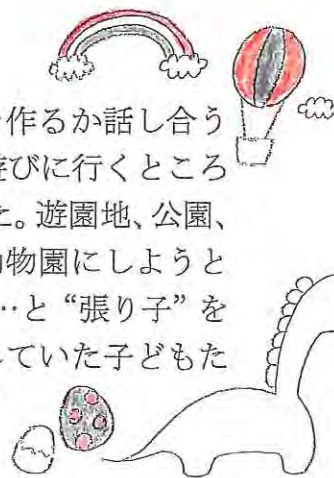 作るか話し合う
遊びに行くところ
た。遊園地、公園、
動物園にしようと
…と“張り子”を
していた子どもた